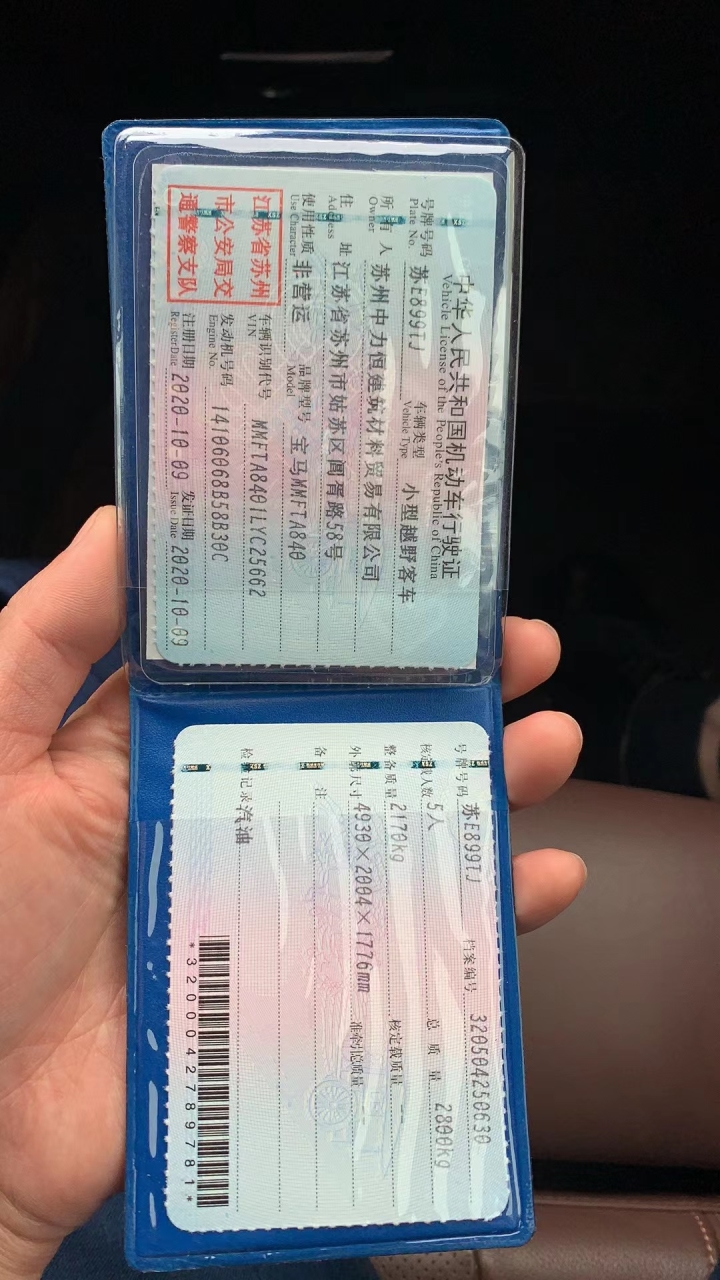 中华人民共和国机动车行驶证
Vehicle License of the People's Republic of China
号牌号码 苏E899TJ 车辆类型 小型越野客车
Plate No. Vehicle Type
所有人 苏州中力恒建筑材料贸易有限公司
Owner
住址 江苏省苏州市姑苏区阊胥路58号
Address
使用性质 非营运 品牌型号 宝马WMFTA840
Use Character Model
江苏省苏州
市公安局交
通警察支队
车辆识别代号 MMFTA8401LYC25662
VIN
发动机号码 14106068B58B30C
Engine No.
注册日期 2020-10-09 发证日期 2020-10-09
Register Date Issue Date
号牌号码 苏E899TJ 档案编号 320504250630
核定载人数 5人 总质量 2800kg
整备质量 2170kg 核定载质量 --
外廓尺寸 4930×2004×1776mm 准牵引总质量 --
备注
检验记录 汽油
*3200042789781*